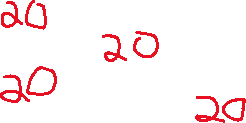 20
20
20
20